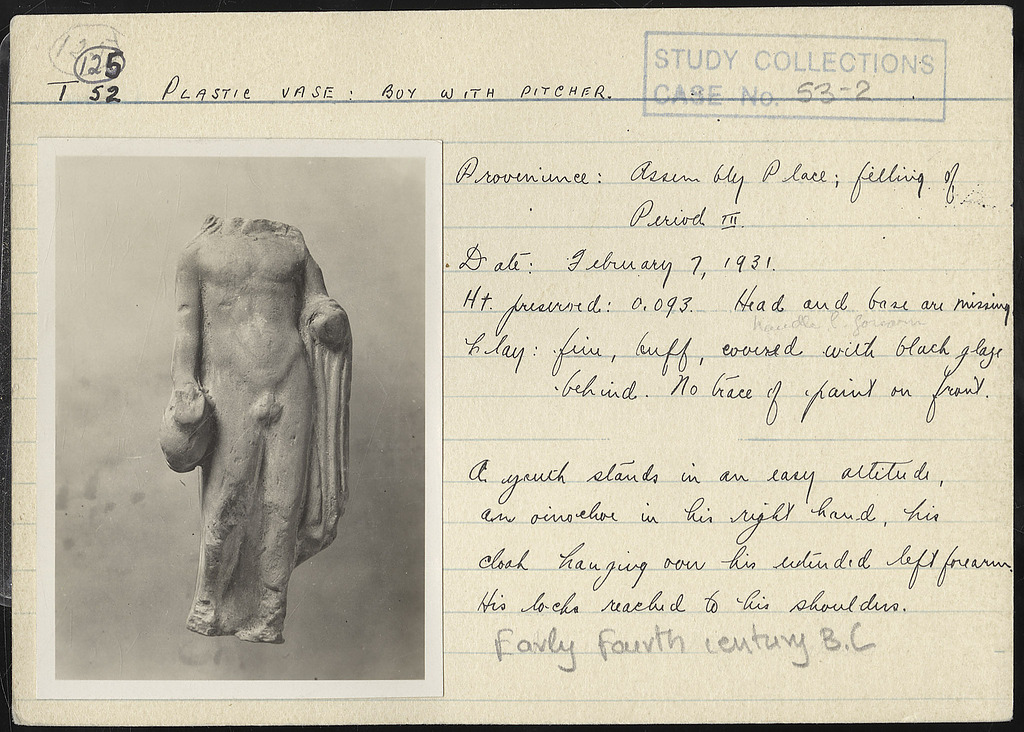 125
T 52 PLASTIC VASE: BOY WITH PITCHER.
STUDY COLLECTIONS
CASE No. 53-2
Provenience: Assembly Place; filling of
Period III.
Date: February 7, 1931.
Ht. preserved: 0.093. Head and base are missing
handle l. forearm
Clay: fine, buff, covered with black glaze
behind. No trace of paint on front.
A youth stands in an easy attitude,
an oinochoe in his right hand, his
cloak hanging over his extended left forearm.
His locks reached to his shoulders.
Early fourth century B.C